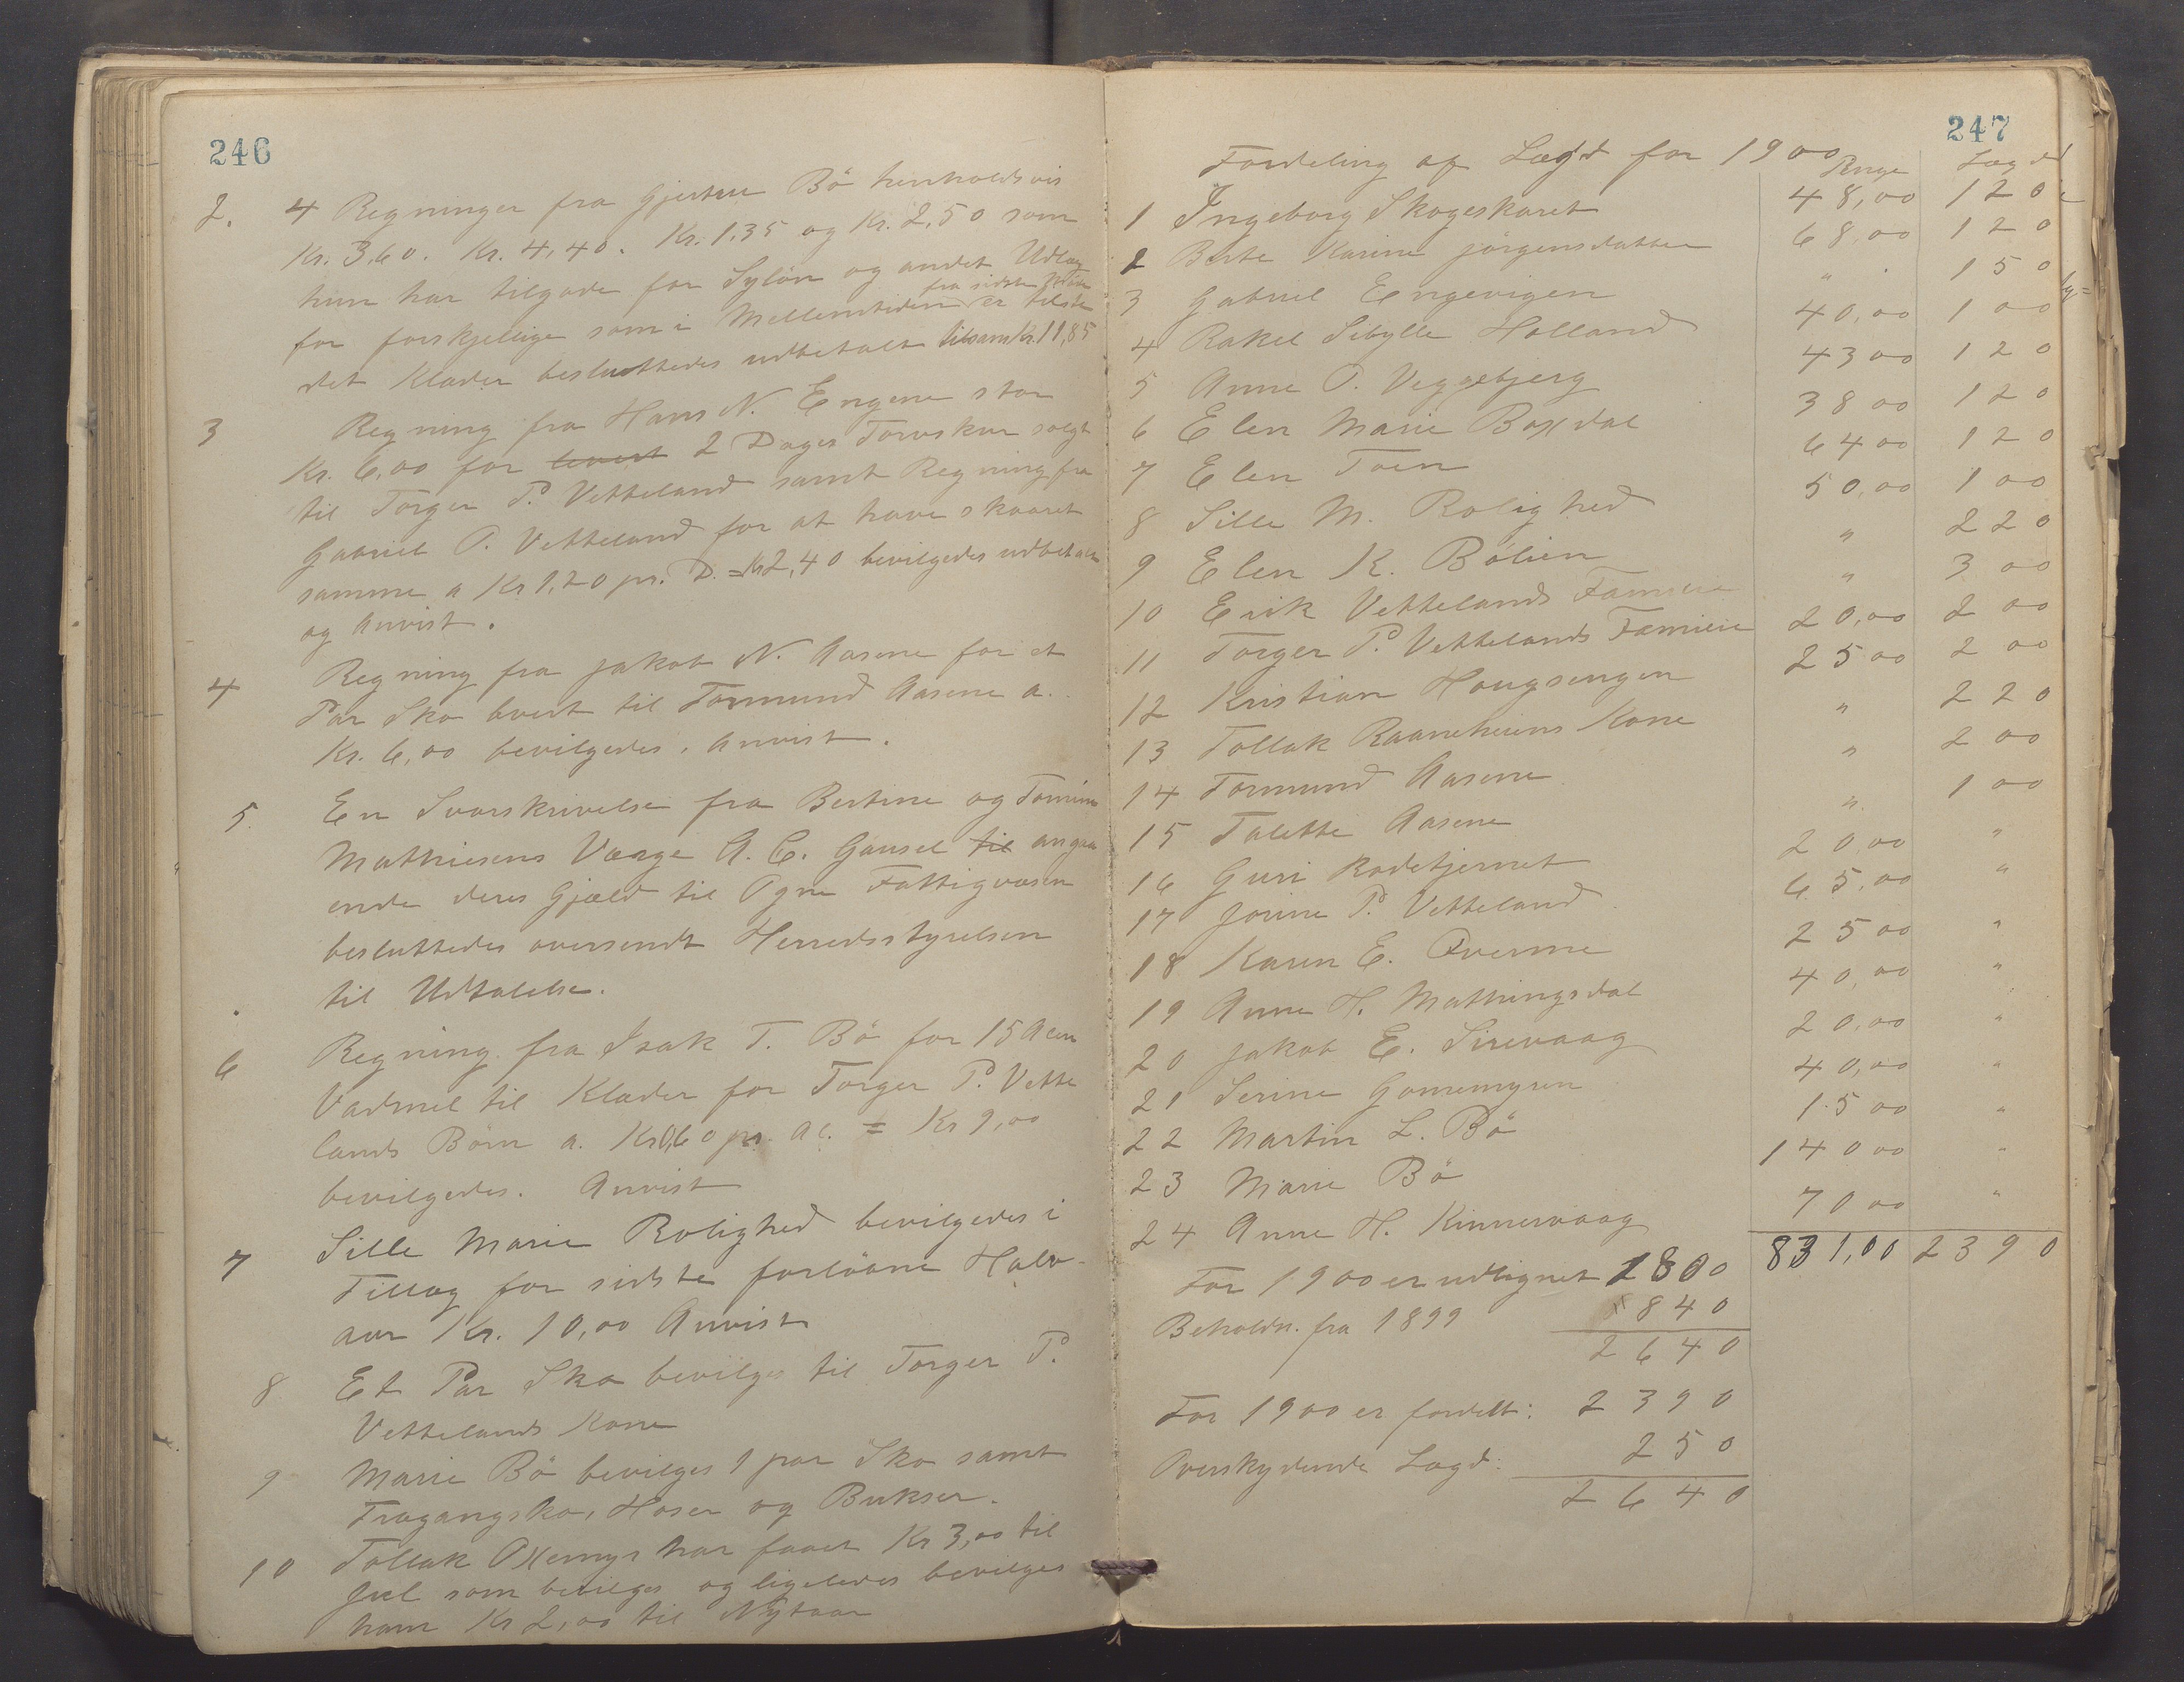 246
2. 4 Regninger fra Gjertine Bö henholdsvis
Kr. 3,60. Kr. 4,40. Kr. 1,35 og Kr. 2,50 som
hun har tilgode for Sylön og andet Udlag
for forskjellige som i Mellemtiden fra sidste Möde er tilste
det Klæder besluttedes udbetalt tilsam Kr. 11,85
3 Regning fra Hans N. Engene stor
Kr. 6,00 for levert 2 Dages Torvskur solgt
til Torger P. Vetteland samt Regning fra
Gabriel P. Vetteland for at have skaaret
samme a Kr 1,20 pr. D. = Kr 2,40 bevilgedes udbetalt
og Anvist.
4 Regning fra Jakob N. Aasene for et
Par Sko levert til Tormund Aasene a.
Kr. 6,00 bevilgedes. Anvist.
5. En Svarskrivelse fra Bertine og Tomine
Mathiesens Værge A. C. Gausel til angaa
ende deres Gjæld til Ogne Fattigvæsen
besluttedes oversendt Herredsstyrelsen
til Udtalelse.
6 Regning fra Isak T. Bö for 15 Alen
Vadmel til Klæder for Torger P. Vette
lands Börn a. Kr 0,60 pr. Al. = Kr 9,00
bevilgedes. Anvist
7 Sille Marie Rolighed bevilgedes i
Tillæg for sidste forlöbne Halv-
aar Kr. 10,00 Anvist
8 Et Par Sko bevilges til Torger P.
Vettelands Kone
9 Marie Bö bevilges 1 par Sko samt
Tragangsko, Hoser og Bukser.
10 Tollak Oxemyr har faaet Kr 3,00 til
Jul som bevilges og ligeledes bevilges
ham Kr 2,00 til Nytaar
247
Fordeling af Lægd for 1900
Penge Lægd
1 Ingeborg Skogeskaret 48,00 120
2 Berte Karine Jörgensdatter 68,00 120
3 Gabriel Engevigen " 150
4 Rakel Sibylle Holland 40,00 100
5 Anne P. Veggebjerg 43 00 120
6 Elen Marie Boxdal 38 00 120
7 Elen Toen 64 00 120
8 Sille M. Rolighed 50,00 100
9 Elen K. Bölien " 220
10 Erik Vettelands Familie " 300
11 Torger P. Vettelands Familie 20,00 200
12 Kristian Hougsengen 25 00 200
13 Tollak Raaneheiens Kone " 220
14 Tormund Aasene " 200
15 Talette Aasene " 100
16 Guri Rodetjernet 20,00 "
17 Jorine P. Vetteland 65,00 "
18 Karen E. Tverme 25 00 "
19 Anne H. Mathingsdal 40,00 "
20 Jakob E. Sirevaag 20,00 "
21 Serine Gomemyren 40,00 "
22 Martin L. Bö 15 00 "
23 Marie Bö 140 00 "
24 Anne H. Kinnervaag 70 00 "
831,00 2390
For 1900 er udlignet 1800
Beholdn. fra 1899 " 840
2640
For 1900 er fordelt: 2390
Overskydende Lægd: 250
2640